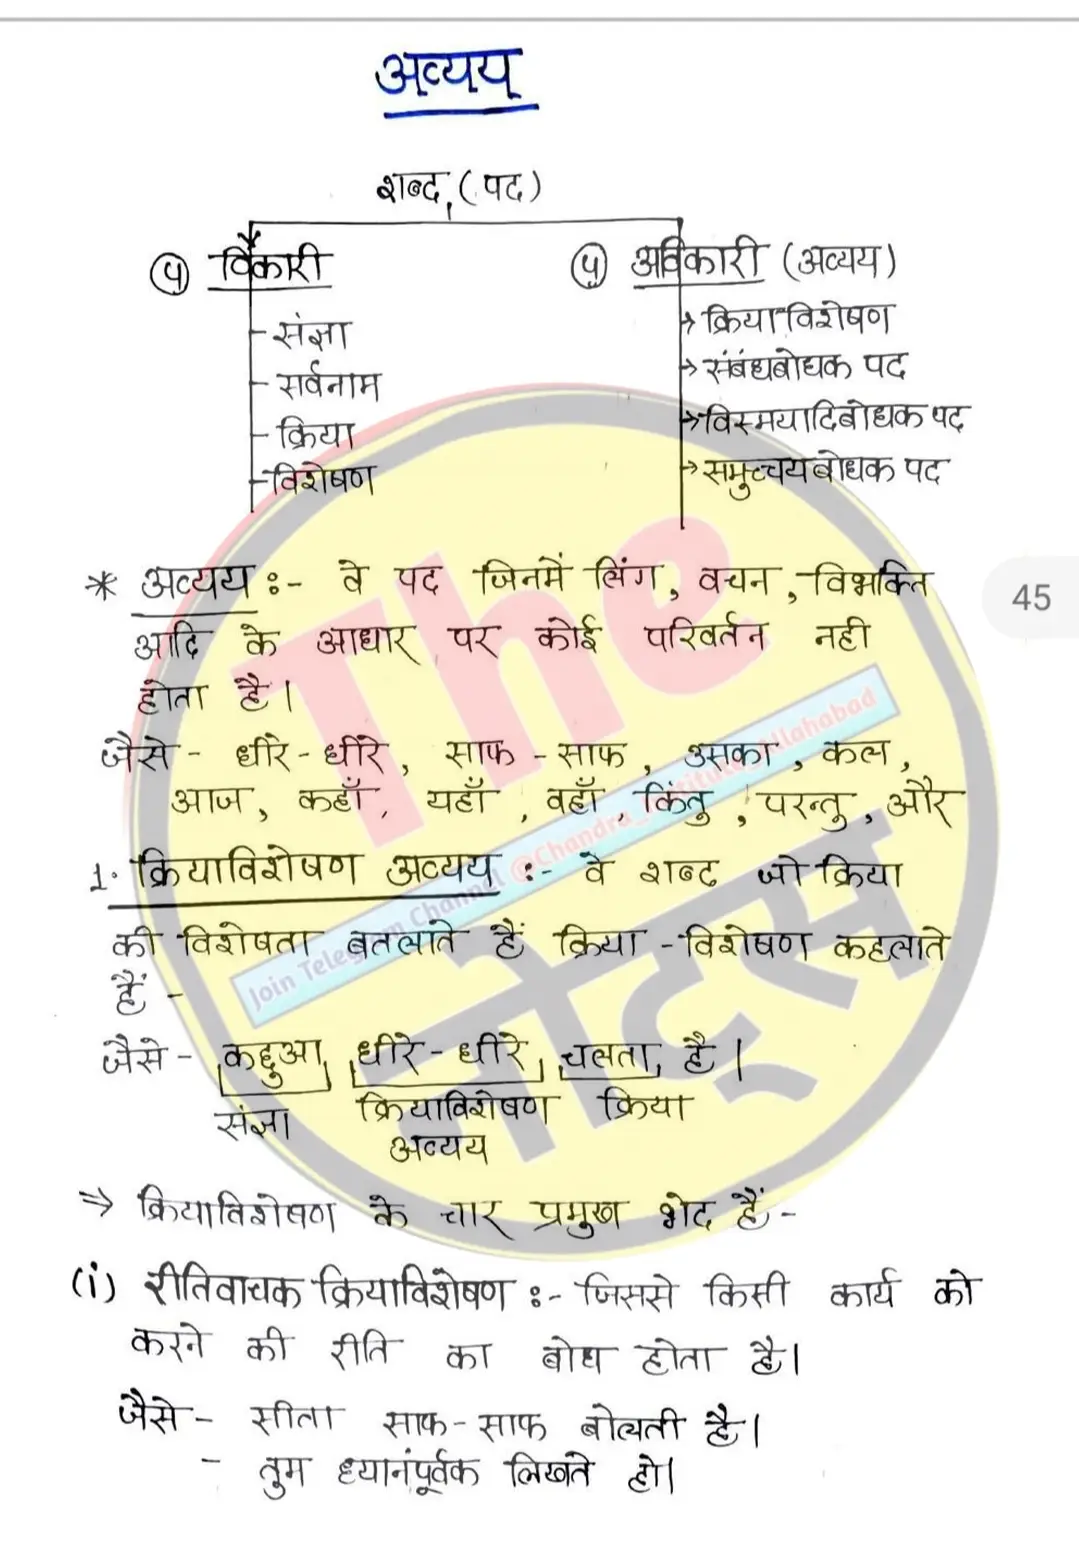 अव्यय
शब्द (पद)
४ विकारी
४ अविकारी (अव्यय)
- संज्ञा
- सर्वनाम
- क्रिया
- विशेषण
→ क्रियाविशेषण
→ संबंधबोधक पद
→ विस्मयादिबोधक पद
→ समुच्चयबोधक पद
* अव्यय :- वे पद जिनमें लिंग, वचन, विभक्ति
आदि के आधार पर कोई परिवर्तन नही
होता है।
जैसे - धीरे-धीरे, साफ-साफ, उसका, कल,
आज, कहाँ, यहाँ, वहाँ, किंतु, परन्तु, और
1. क्रियाविशेषण अव्यय :- वे शब्द जो क्रिया
की विशेषता बतलाते हैं क्रिया-विशेषण कहलाते
हैं -
जैसे - कछुआ धीरे-धीरे चलता है।
संज्ञा क्रियाविशेषण क्रिया
अव्यय
⇒ क्रियाविशेषण के चार प्रमुख भेद हैं-
(i) रीतिवाचक क्रियाविशेषण :- जिससे किसी कार्य को
करने की रीति का बोध होता है।
जैसे - सीता साफ-साफ बोलती है।
- तुम ध्यानपूर्वक लिखते हो।
45
The
नोट्स
Join Telegram Channel @Chandra_Institute_Allahabad